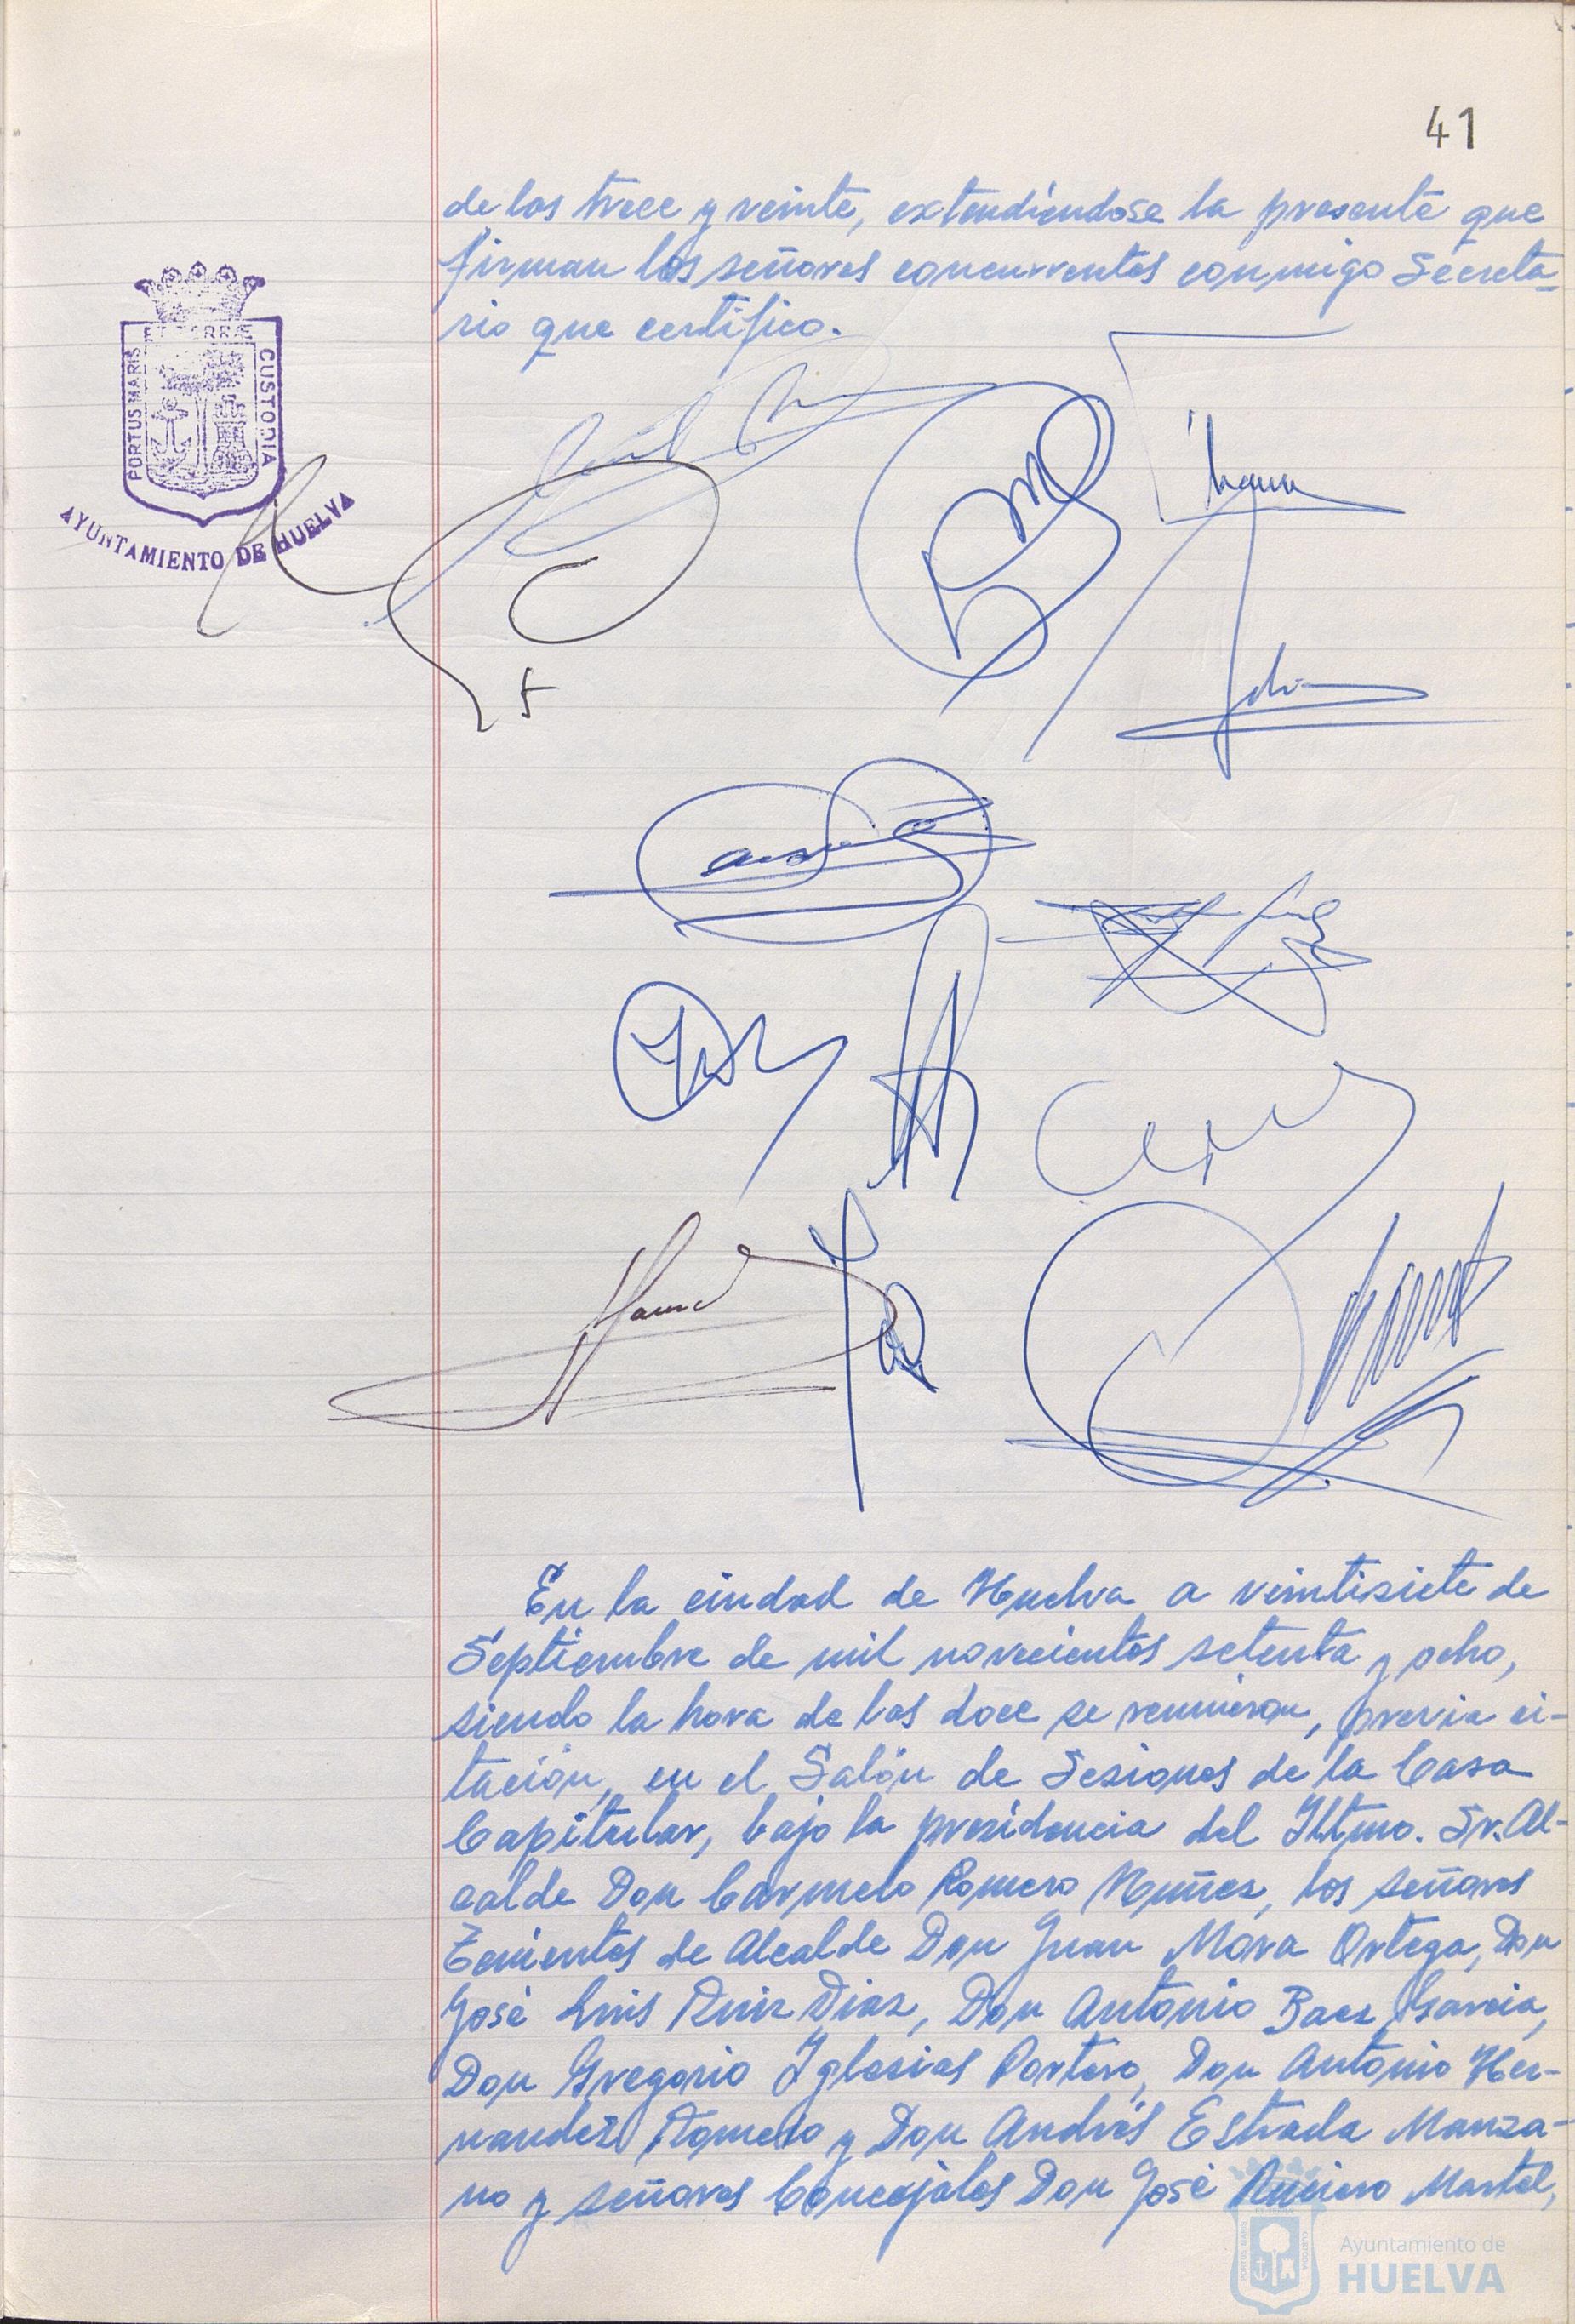 41
de las trece y veinte, extendiéndose la presente que
firman los señores concurrentes conmigo Secreta-
rio que certifico.
PORTUS MARIS ET TERRÆ CUSTODIA
AYUNTAMIENTO DE HUELVA
En la ciudad de Huelva a veintisiete de
Septiembre de mil novecientos setenta y ocho,
siendo la hora de las doce se reunieron, previa ci-
tación, en el Salón de Sesiones de la Casa
Capitular, bajo la presidencia del Iltmo. Sr. Al-
calde Don Carmelo Romero Núñez, los señores
Tenientes de Alcalde Don Juan Mora Ortega, Don
José Luis Ruiz Diaz, Don Antonio Baez Garcia,
Don Gregorio Iglesias Portero, Don Antonio Her-
nandez Romero y Don Andrés Estrada Manza-
no y señores Concejales Don José Martel,
Ayuntamiento de
HUELVA